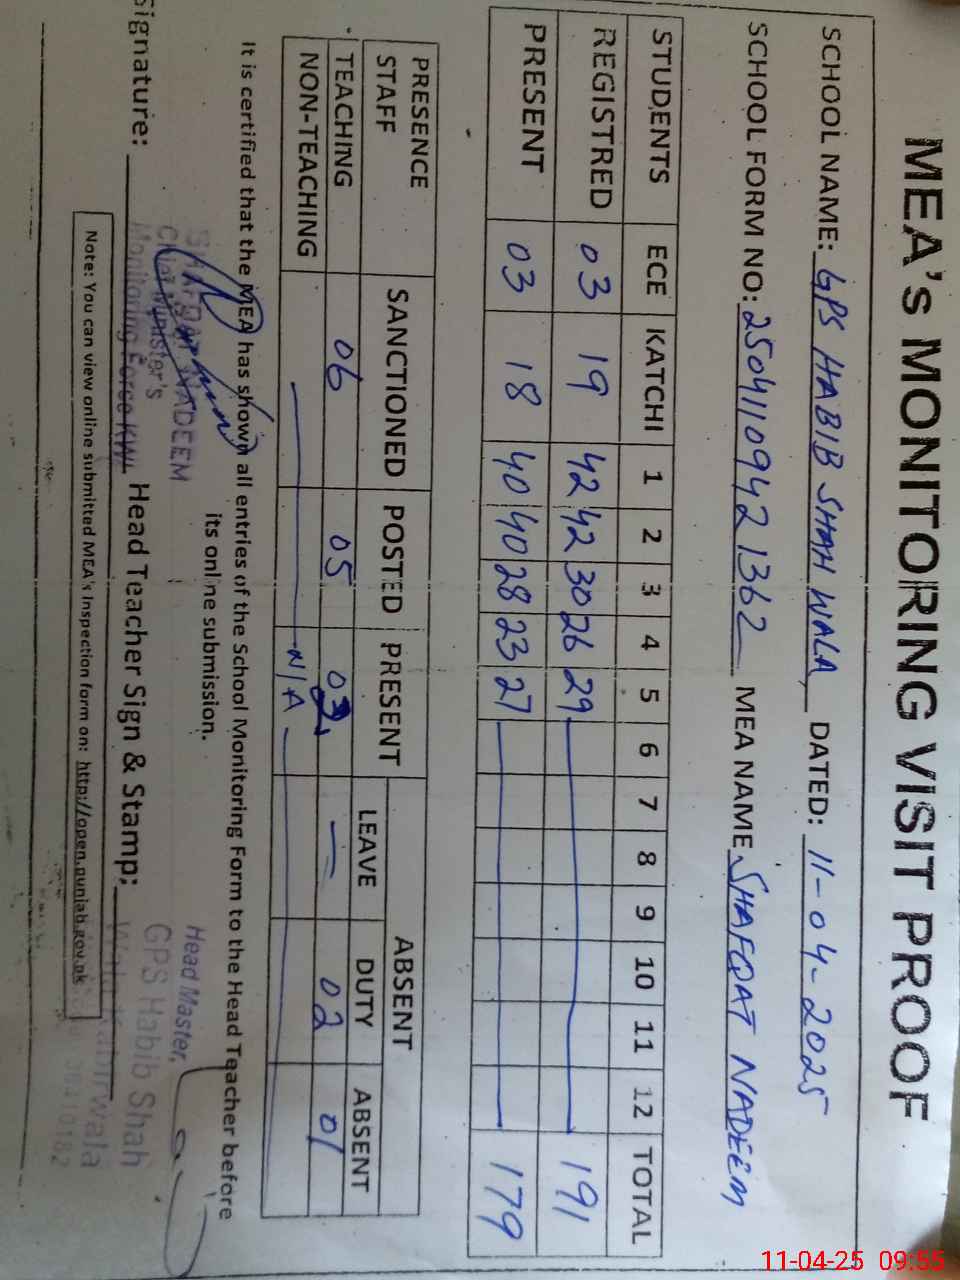 MEA's MONITORING VISIT PROOF
SCHOOL NAME: GPS HABIB SHAH WALA, DATED: 11-04-2025
SCHOOL FORM NO: 2504110942 1362 MEA NAME SHAFQAT NADEEM
STUDENTS ECE KATCHI 1 2 3 4 5 6 7 8 9 10 11 12 TOTAL
REGISTRED 03 19 42 42 30 26 29 191
PRESENT 03 18 40 40 28 23 27 179
PRESENCE STAFF SANCTIONED POSTED PRESENT ABSENT
LEAVE DUTY ABSENT
TEACHING 06 05 02 01
NON-TEACHING N/A
It is certified that the MEA has shown all entries of the School Monitoring Form to the Head Teacher before
its online submission.
SHAFQAT NADEEM
Chief Minister's
Monitoring Force KWL
Head Master,
GPS Habib Shah
Wala Kabirwala
Signature: Head Teacher Sign & Stamp:
Note: You can view online submitted MEA's Inspection form on: http://open.punjab.gov.pk
11-04-25 09:55